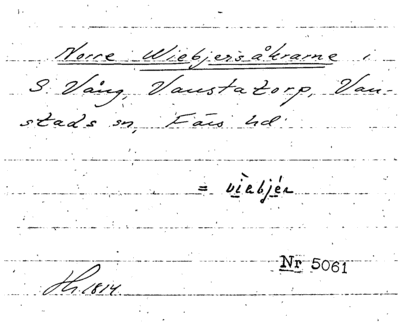 Norre Wiebjersåkrarne i
S. Vång, Vanstatorp, Van-
stads sn, Färs hd
= viebjér
Nr 5061
Hr. 1814.